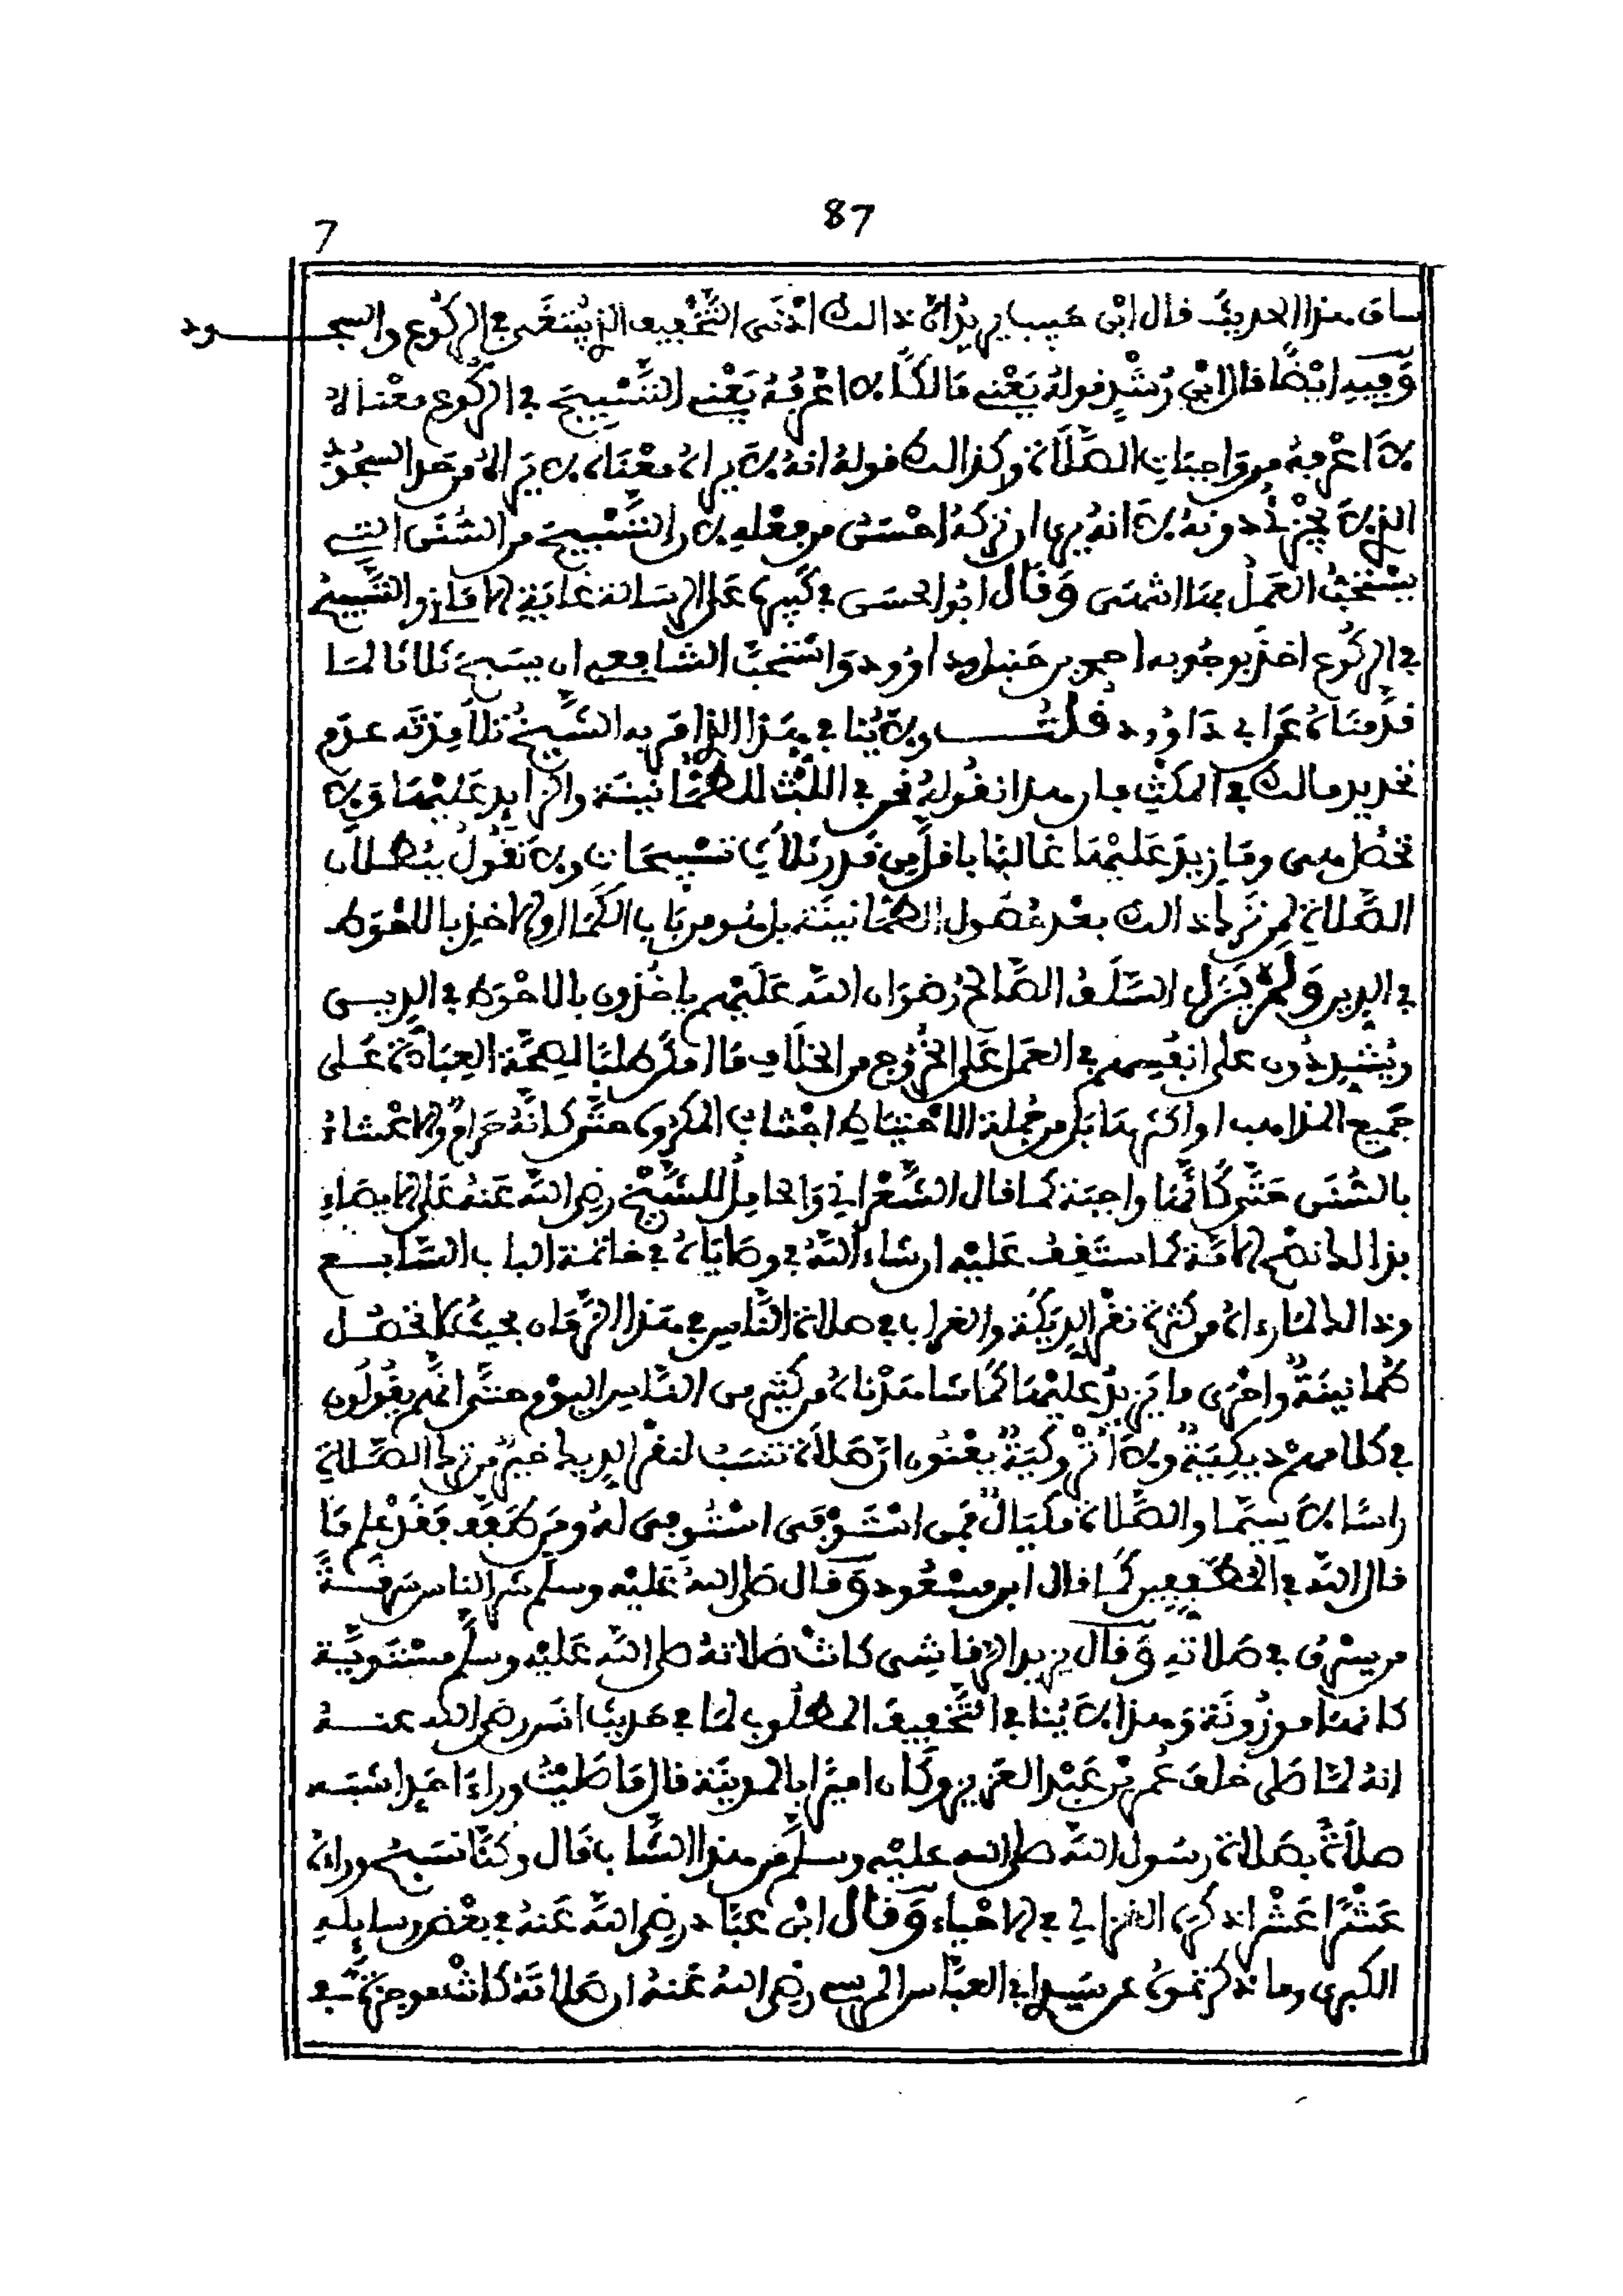 87
7
ساق هذا الحديث قال ابن حبيب يريد ان ذالك ادنى التخفيف الذي ينبغي في الركوع والسجود
وَفيه ايضًا قال ابن رُشْدٍ قوله يَعْني مَالكًا لا اعْرِفهُ يَعْني التَّسْبِيحَ في الركُوع معْناه
لَا اعْرِفهُ من وَاجبَات الصَّلَاة وكذالك قولهُ انهُ لَا يراهُ معْنَاه لَا يَراهُ من حَد السجُود
الذي لَا يجْزئ دونهُ لَا انهُ يرى ان تركهُ احْسَن من فعْلهِ لان التَّسْبيحَ من السُّنَن التي
يسْتحَبُّ العَمَلُ بها وَقَال ابُو الحسَن في كبيره عَلى الرسَالة والتسْبيحُ
في الركُوع اخذ بوجُوبه احمد بن حَنبل وداوُود وَاسْتحبَّ الشافعي ان يسَبحَ ثلاثا لمَا
قدَّمنَاهُ عَن ابي دَاوُود قُلتُ ولَا يُنافي هذا الذي اقَر به الشَّيخُ تلامِذتَه عدَم
تحديد مالك في المكْثِ فان هذا نقُولهُ نحن في اللُّبْث للطمَأنينَة والزايد عَليْهمَا وَلَا
تحْصُل هي ومَا زيدَ عَليْهَا غَالبًا باقلَّ مِن قَدر ثلَاثِ تسْبيحَات ولَا نقُولُ ببُطلَان
الصَّلاة لمن ترك ذالك بعْد حُصُول الطمَأنينَة بل هُو من بَاب الكَمَال والاخذ بالاحْوَط
في الدين وَلمْ يَزَل السَّلَفُ الصَّالحُ رضوَان الله عَلَيْهم ياخُذون بالاحْوَط في الدين
ويُشدِدُون على انفُسِهم في العمَل عَلى الخُرُوج من الخلَاف طلَبًا لصِحَّة العِبَادَة عَلى
جَميع المذاهب او اكثرهَا بَل من جُملة الاحْتيَاط اجْتنَاب المكرُوه حتى كانَّهُ حَرَامٌ والاعْتنَاءُ
بالسُّنَن حَتى كانَّهَا واجبَة كمَا قال الشَّعْرَاني وَالحامِلُ للشَّيْخ رضي الله عَنهُ عَلى الايصَاء
بذالك نصْح الامَّة كما ستَقِفُ عَليْه ان شاء اللهُ في وصَايَاهُ في خاتمة الباب السَّابع
وذالك لمَا رءاهُ من كثرة نقْر الديَكة والغرَاب في صلاة النَّاس في هذا الزمَان بحيثُ لا تحْصُل
طُمَأنينَةٌ واحْرَى ما يَزيدُ عَليْهَا كمَا شَاهَدْناهُ من كثيرٍ من النَّاس اليَوْم حتى انهُم يقُولُون
في كلامهم ديكِيَةٌ ولَا يعْنُون ان صَلَاةً تشبهُ لنقْر الديك خيرٌ من ترك الصَّلاة
رَاسًا لَا سِيمَا والصَّلاة مكيَالٌ فمَن اسْتَوْفى اسْتُوفيَ لهُ ومَن طفَّف فقَدْ عَلم مَا
قال الله في المُطفِّفين كمَا قال ابن مسْعُود وَقال صَلى اللهُ عَليْه وسلم شر الناس سَرقةً
من يسْرقُ في صَلاته وَقال يزيد الرقاشي كانتْ صَلاتهُ صلى الله عَليْه وسلم مسْتَويَة
كانهَا موزُونَة وَهذا لَا يُنافي التَّخفِيفَ المطلُوب لمَا في حَديث انس رضي الله عنهُ
انهُ لمَّا صَلى خلفَ عُمر بْن عَبْد العَزيز وكَان اميرًا بالمدينَة قال مَا صَليْتُ وراءَ احَدٍ اشبَه
صلَاةً بصَلاة رسُول الله صلى الله عليْه وسلم من هذا الشَّاب قَال وكنَّا نسَبحُ وراءهُ
عَشْرًا عَشْرًا ذكرهُ الغزالي في الاحْياء وَقَال ابْن عبَّاد رضي الله عَنهُ في بعْض رسايله
الكبرى وما ذكرتمُوهُ عن سَيدي ابي العبَّاس المرسي رضي اللهُ عَنهُ ان صَلاتَهُ كانتْ موجزةً